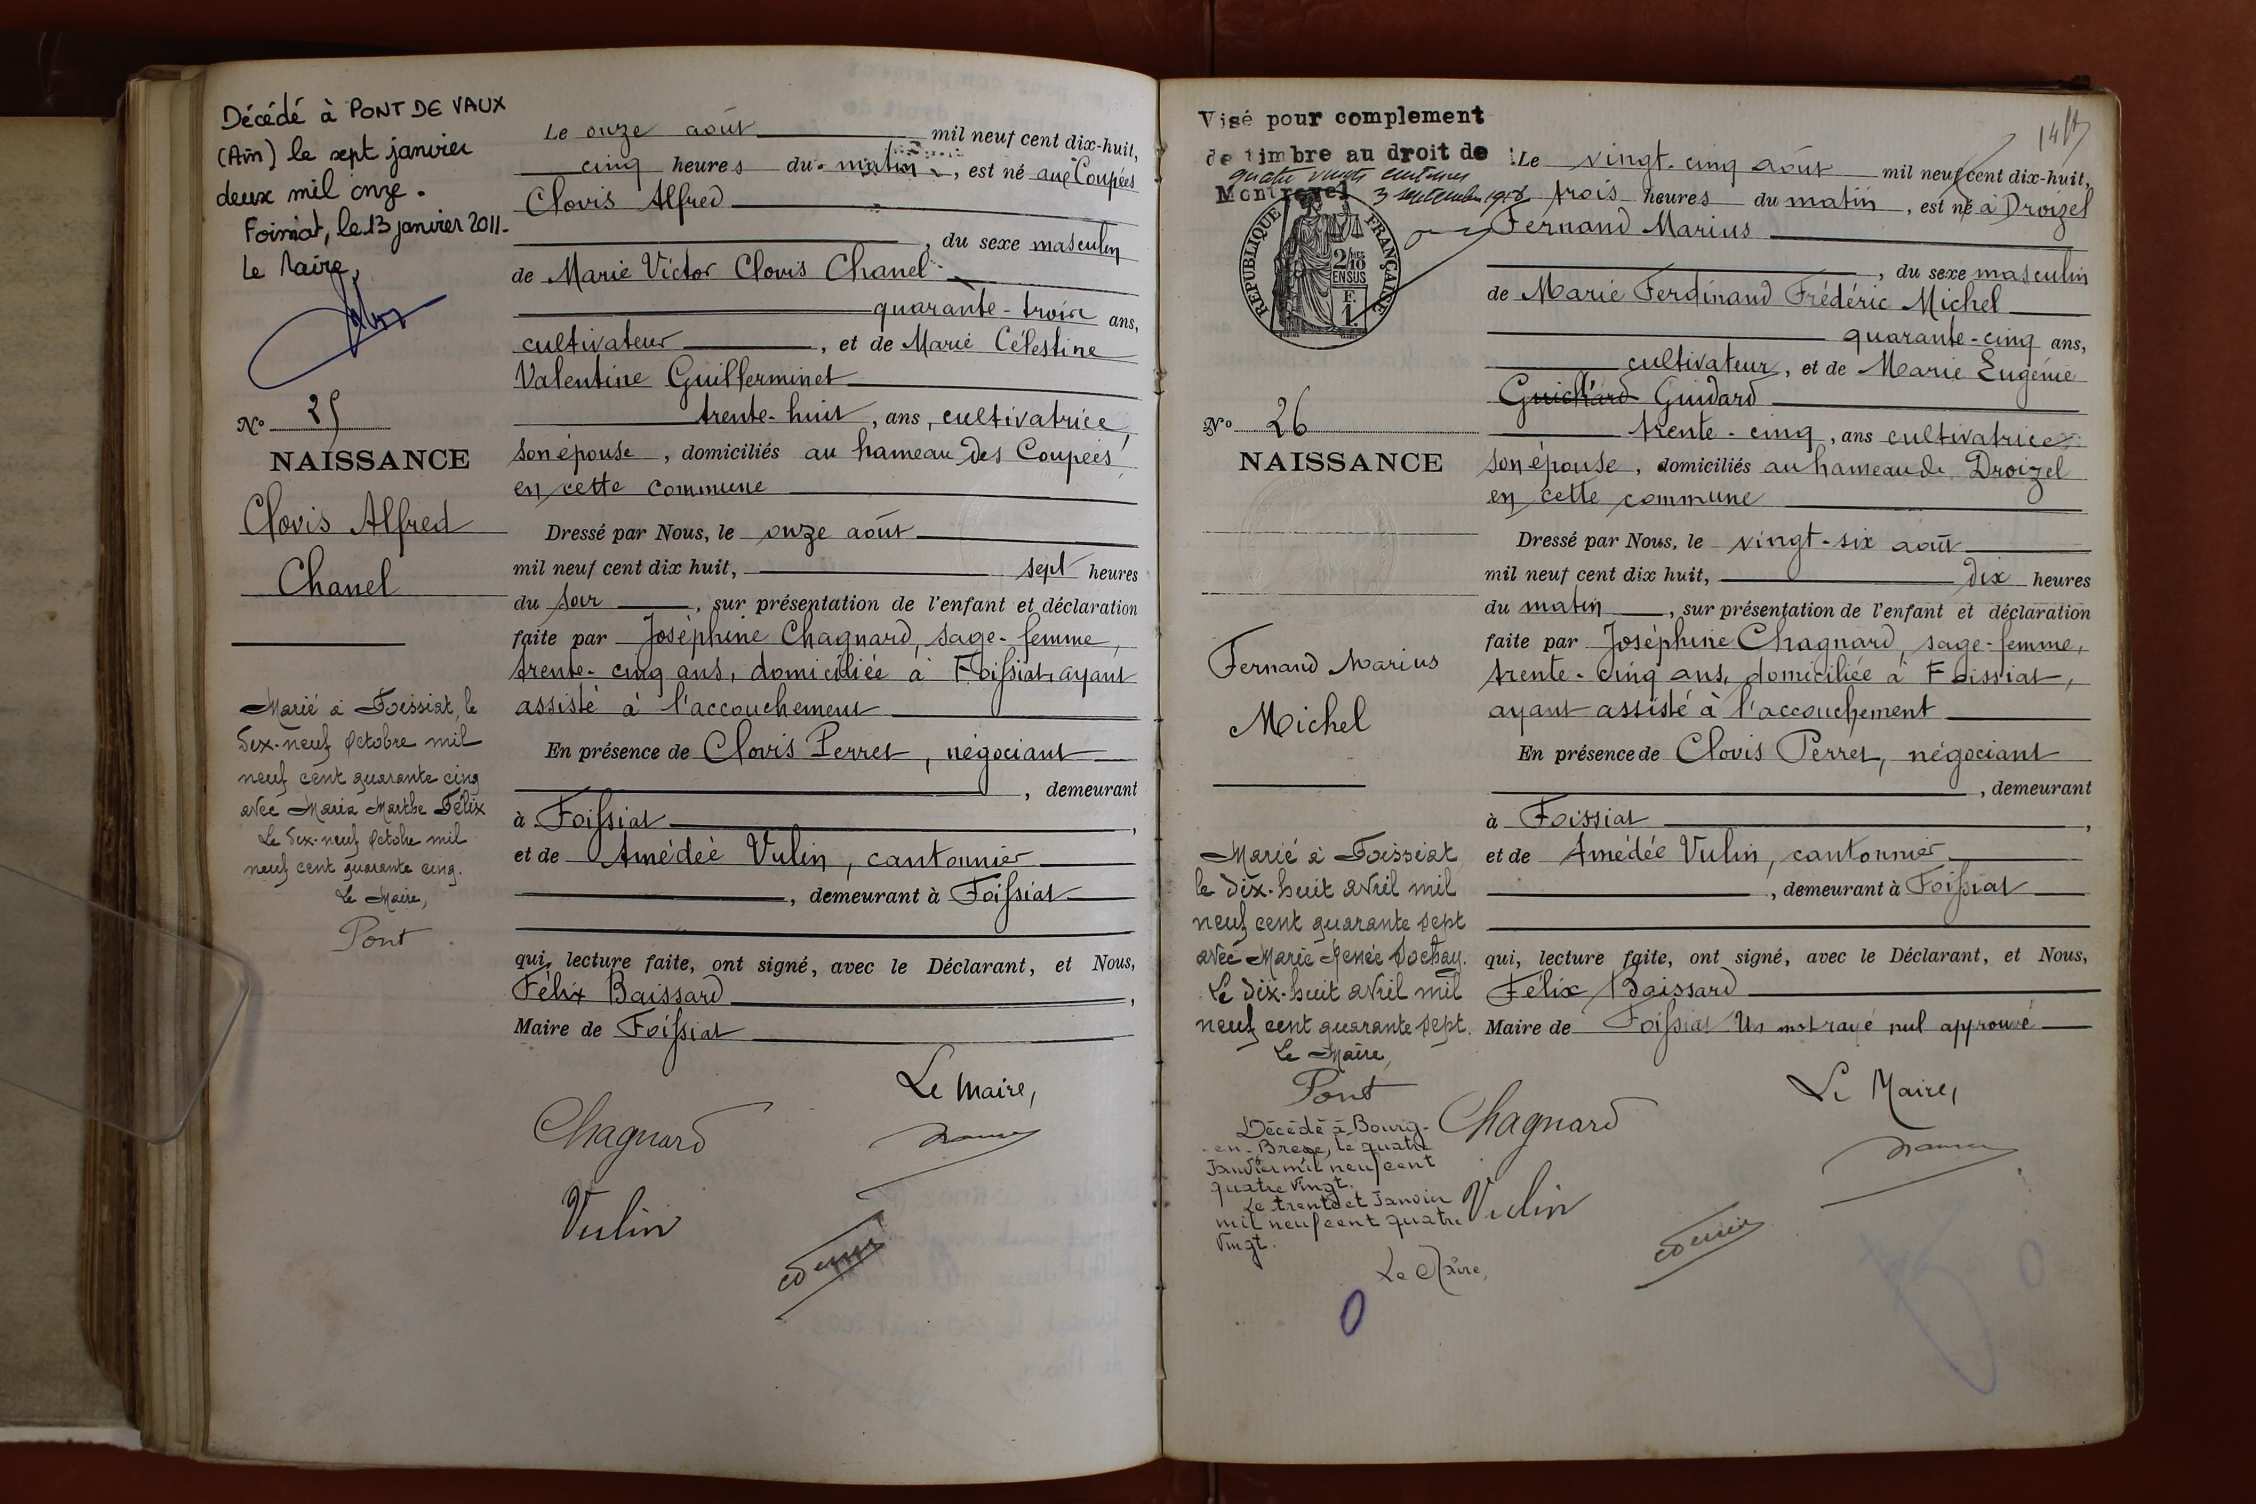 Décédé à PONT DE VAUX
(Ain) le sept janvier
deux mil onze.
Foissiat, le 13 janvier 2011.
Le Maire,
N° 25
NAISSANCE
Clovis Alfred
Chanel
Marié à Foissiat, le
dix-neuf Octobre mil
neuf cent quarante cinq
avec Maria Marthe Félix
Le dix-neuf Octobre mil
neuf cent quarante cinq.
Le Maire,
Pont
Le onze août mil neuf cent dix-huit,
cinq heures du matin, est né aux Coupées
Clovis Alfred
, du sexe masculin
de Marie Victor Clovis Chanel
quarante-trois ans,
cultivateur, et de Marie Célestine
Valentine Guillerminet
trente-huit, ans, cultivatrice,
son épouse, domiciliés au hameau des Coupées
en cette commune
Dressé par Nous, le onze août
mil neuf cent dix huit, sept heures
du soir, sur présentation de l'enfant et déclaration
faite par Joséphine Chagnard, sage-femme,
trente-cinq ans, domiciliée à Foissiat, ayant
assisté à l'accouchement
En présence de Clovis Perret, négociant
, demeurant
à Foissiat,
et de Amédée Vulin, cantonnier
, demeurant à Foissiat
qui, lecture faite, ont signé, avec le Déclarant, et Nous,
Félix Baissard,
Maire de Foissiat
Le Maire,
Chagnard
Vulin
Visé pour complement
de timbre au droit de
quatre vingts centimes
Montrevel 3 septembre 1918
REPUBLIQUE FRANÇAISE
2/10
EN SUS
F.
1.
N° 26
NAISSANCE
Fernand Marius
Michel
Marié à Foissiat
le dix-huit avril mil
neuf cent quarante sept
avec Marie Renée Sochay.
Le dix-huit avril mil
neuf cent quarante sept.
Le Maire,
Pont
Décédé à Bourg-
en-Bresse, le quatre
Janvier mil neuf cent
quatre vingt.
Le trente et Janvier
mil neuf cent quatre
vingt.
Le Maire,
Le vingt-cinq août mil neuf cent dix-huit,
trois heures du matin, est né à Droizel
Fernand Marius
, du sexe masculin
de Marie Ferdinand Frédéric Michel
quarante-cinq ans,
cultivateur, et de Marie Eugénie
Guichard Guidard
trente-cinq, ans cultivatrice
son épouse, domiciliés au hameau de Droizel
en cette commune
Dressé par Nous, le vingt-six août
mil neuf cent dix huit, dix heures
du matin, sur présentation de l'enfant et déclaration
faite par Joséphine Chagnard, sage-femme,
trente-cinq ans, domiciliée à Foissiat,
ayant assisté à l'accouchement
En présence de Clovis Perret, négociant
, demeurant
à Foissiat,
et de Amédée Vulin, cantonnier
, demeurant à Foissiat
qui, lecture faite, ont signé, avec le Déclarant, et Nous,
Félix Baissard
Maire de Foissiat Un mot rayé nul approuvé
Le Maire,
Chagnard
Vulin